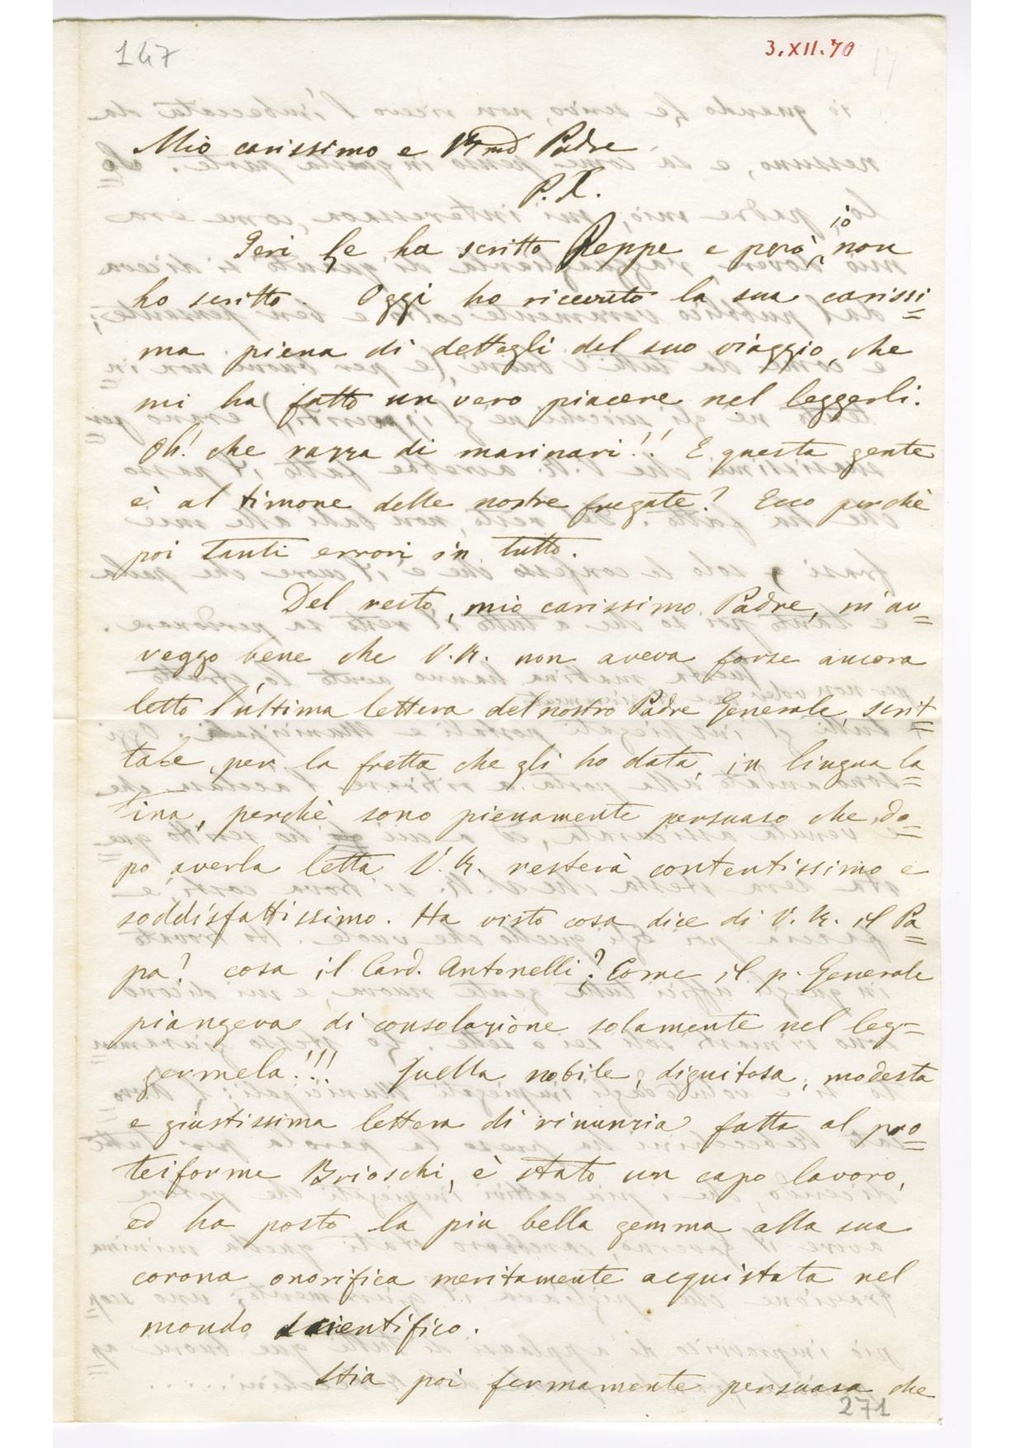 147
3.XII.70
Mio carissimo e Rmo Padre
P. X.
Ieri Le ha scritto Peppe e però io non
ho scritto. Oggi ho ricevuto la sua carissi=
ma piena di dettagli del suo viaggio, che
mi ha fatto un vero piacere nel leggerli.
Oh! che razza di marinari!! E questa gente
è al timone delle nostre fregate? Ecco perchè
poi tanti errori in tutto.
Del resto, mio carissimo Padre, m'av=
veggo bene che V. R. non aveva forse ancora
letto l'ultima lettera del nostro Padre Generale, scrit=
tale, per la fretta che gli ho data, in lingua la=
tina, perchè sono pienamente persuaso che do=
po averla letta V. R. resterà contentissimo e
soddisfattissimo. Ha visto cosa dice di V. R. il Pa=
pa? cosa il Card. Antonelli? Come il p. Generale
piangeva di consolazione solamente nel leg=
germela!!! Quella nobile, dignitosa, modesta
e giustissima lettera di rinunzia fatta al pro=
teiforme Brioschi, è stato un capo lavoro,
ed ha posto la più bella gemma alla sua
corona onorifica meritamente acquistata nel
mondo scientifico.
Stia poi fermamente persuasa che
271